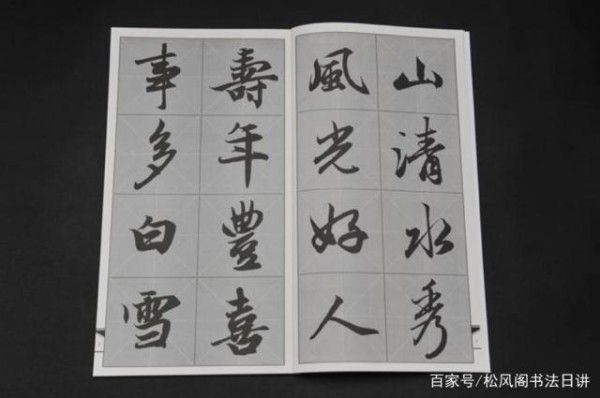 山清水秀
風光好人
壽年豐喜
事多白雪
百家号/松风阁书法日讲